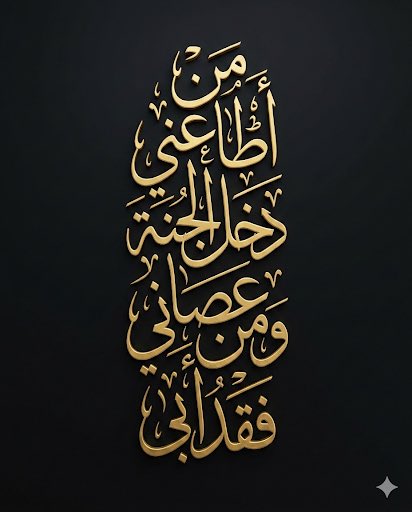 مَنْ
أَطَاعَنِي
دَخَلَ الْجَنَّةَ
وَمَنْ عَصَانِي
فَقَدْ أَبَى